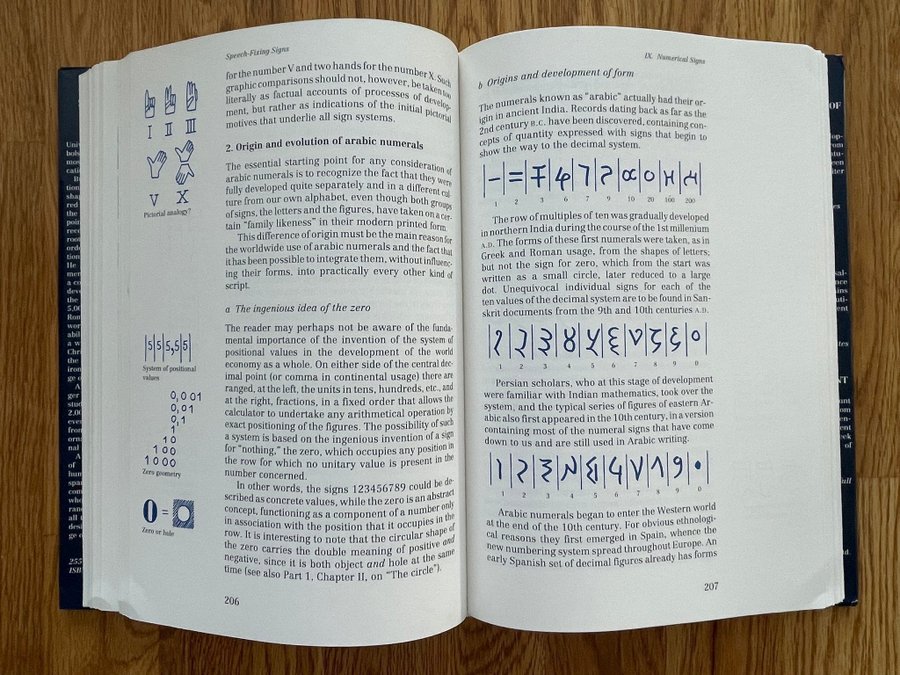 Speech-Fixing Signs
for the number V and two hands for the number X. Such
graphic comparisons should not, however, be taken too
literally as factual accounts of processes of develop-
ment, but rather as indications of the initial pictorial
motives that underlie all sign systems.
I II III
V X
Pictorial analogy?
2. Origin and evolution of arabic numerals
The essential starting point for any consideration of
arabic numerals is to recognize the fact that they were
fully developed quite separately and in a different cul-
ture from our own alphabet, even though both groups
of signs, the letters and the figures, have taken on a cer-
tain “family likeness” in their modern printed form.
This difference of origin must be the main reason for
the worldwide use of arabic numerals and the fact that
it has been possible to integrate them, without influenc-
ing their forms, into practically every other kind of
script.
a The ingenious idea of the zero
The reader may perhaps not be aware of the funda-
mental importance of the invention of the system of
positional values in the development of the world
economy as a whole. On either side of the central dec-
imal point (or comma in continental usage) there are
ranged, at the left, the units in tens, hundreds, etc., and
at the right, fractions, in a fixed order that allows the
calculator to undertake any arithmetical operation by
exact positioning of the figures. The possibility of such
a system is based on the ingenious invention of a sign
for “nothing,” the zero, which occupies any position in
the row for which no unitary value is present in the
number concerned.
In other words, the signs 123456789 could be de-
scribed as concrete values, while the zero is an abstract
concept, functioning as a component of a number only
in association with the position that it occupies in the
row. It is interesting to note that the circular shape of
the zero carries the double meaning of positive and
negative, since it is both object and hole at the same
time (see also Part 1, Chapter II, on “The circle”).
|5|5|5,5|5|
System of positional
values
0,001
0,01
0,1
1
10
100
1000
Zero geometry
0 =
Zero or hole
206
IX. Numerical Signs
b Origins and development of form
The numerals known as “arabic” actually had their or-
igin in ancient India. Records dating back as far as the
2nd century B.C. have been discovered, containing con-
cepts of quantity expressed with signs that begin to
show the way to the decimal system.
1 2 4 6 7 9 10 20 100 200
The row of multiples of ten was gradually developed
in northern India during the course of the 1st millenium
A.D. The forms of these first numerals were taken, as in
Greek and Roman usage, from the shapes of letters;
but not the sign for zero, which from the start was
written as a small circle, later reduced to a large
dot. Unequivocal individual signs for each of the
ten values of the decimal system are to be found in San-
skrit documents from the 9th and 10th centuries A.D.
1 2 3 4 5 6 7 8 9 0
Persian scholars, who at this stage of development
were familiar with Indian mathematics, took over the
system, and the typical series of figures of eastern Ar-
abic also first appeared in the 10th century, in a version
containing most of the numeral signs that have come
down to us and are still used in Arabic writing.
1 2 3 4 5 6 7 8 9 0
Arabic numerals began to enter the Western world
at the end of the 10th century. For obvious ethnologi-
cal reasons they first emerged in Spain, whence the
new numbering system spread throughout Europe. An
early Spanish set of decimal figures already has forms
207